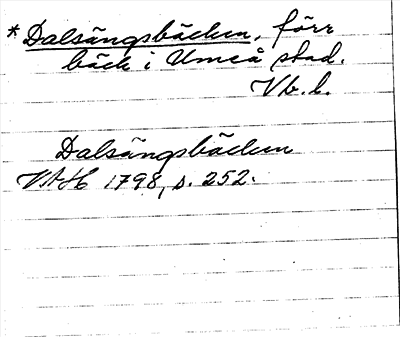 * Dalsängsbäcken, förr
bäck i Umeå stad.
Vb. l.
Dalsängsbäcken
VAH 1798, s. 252.